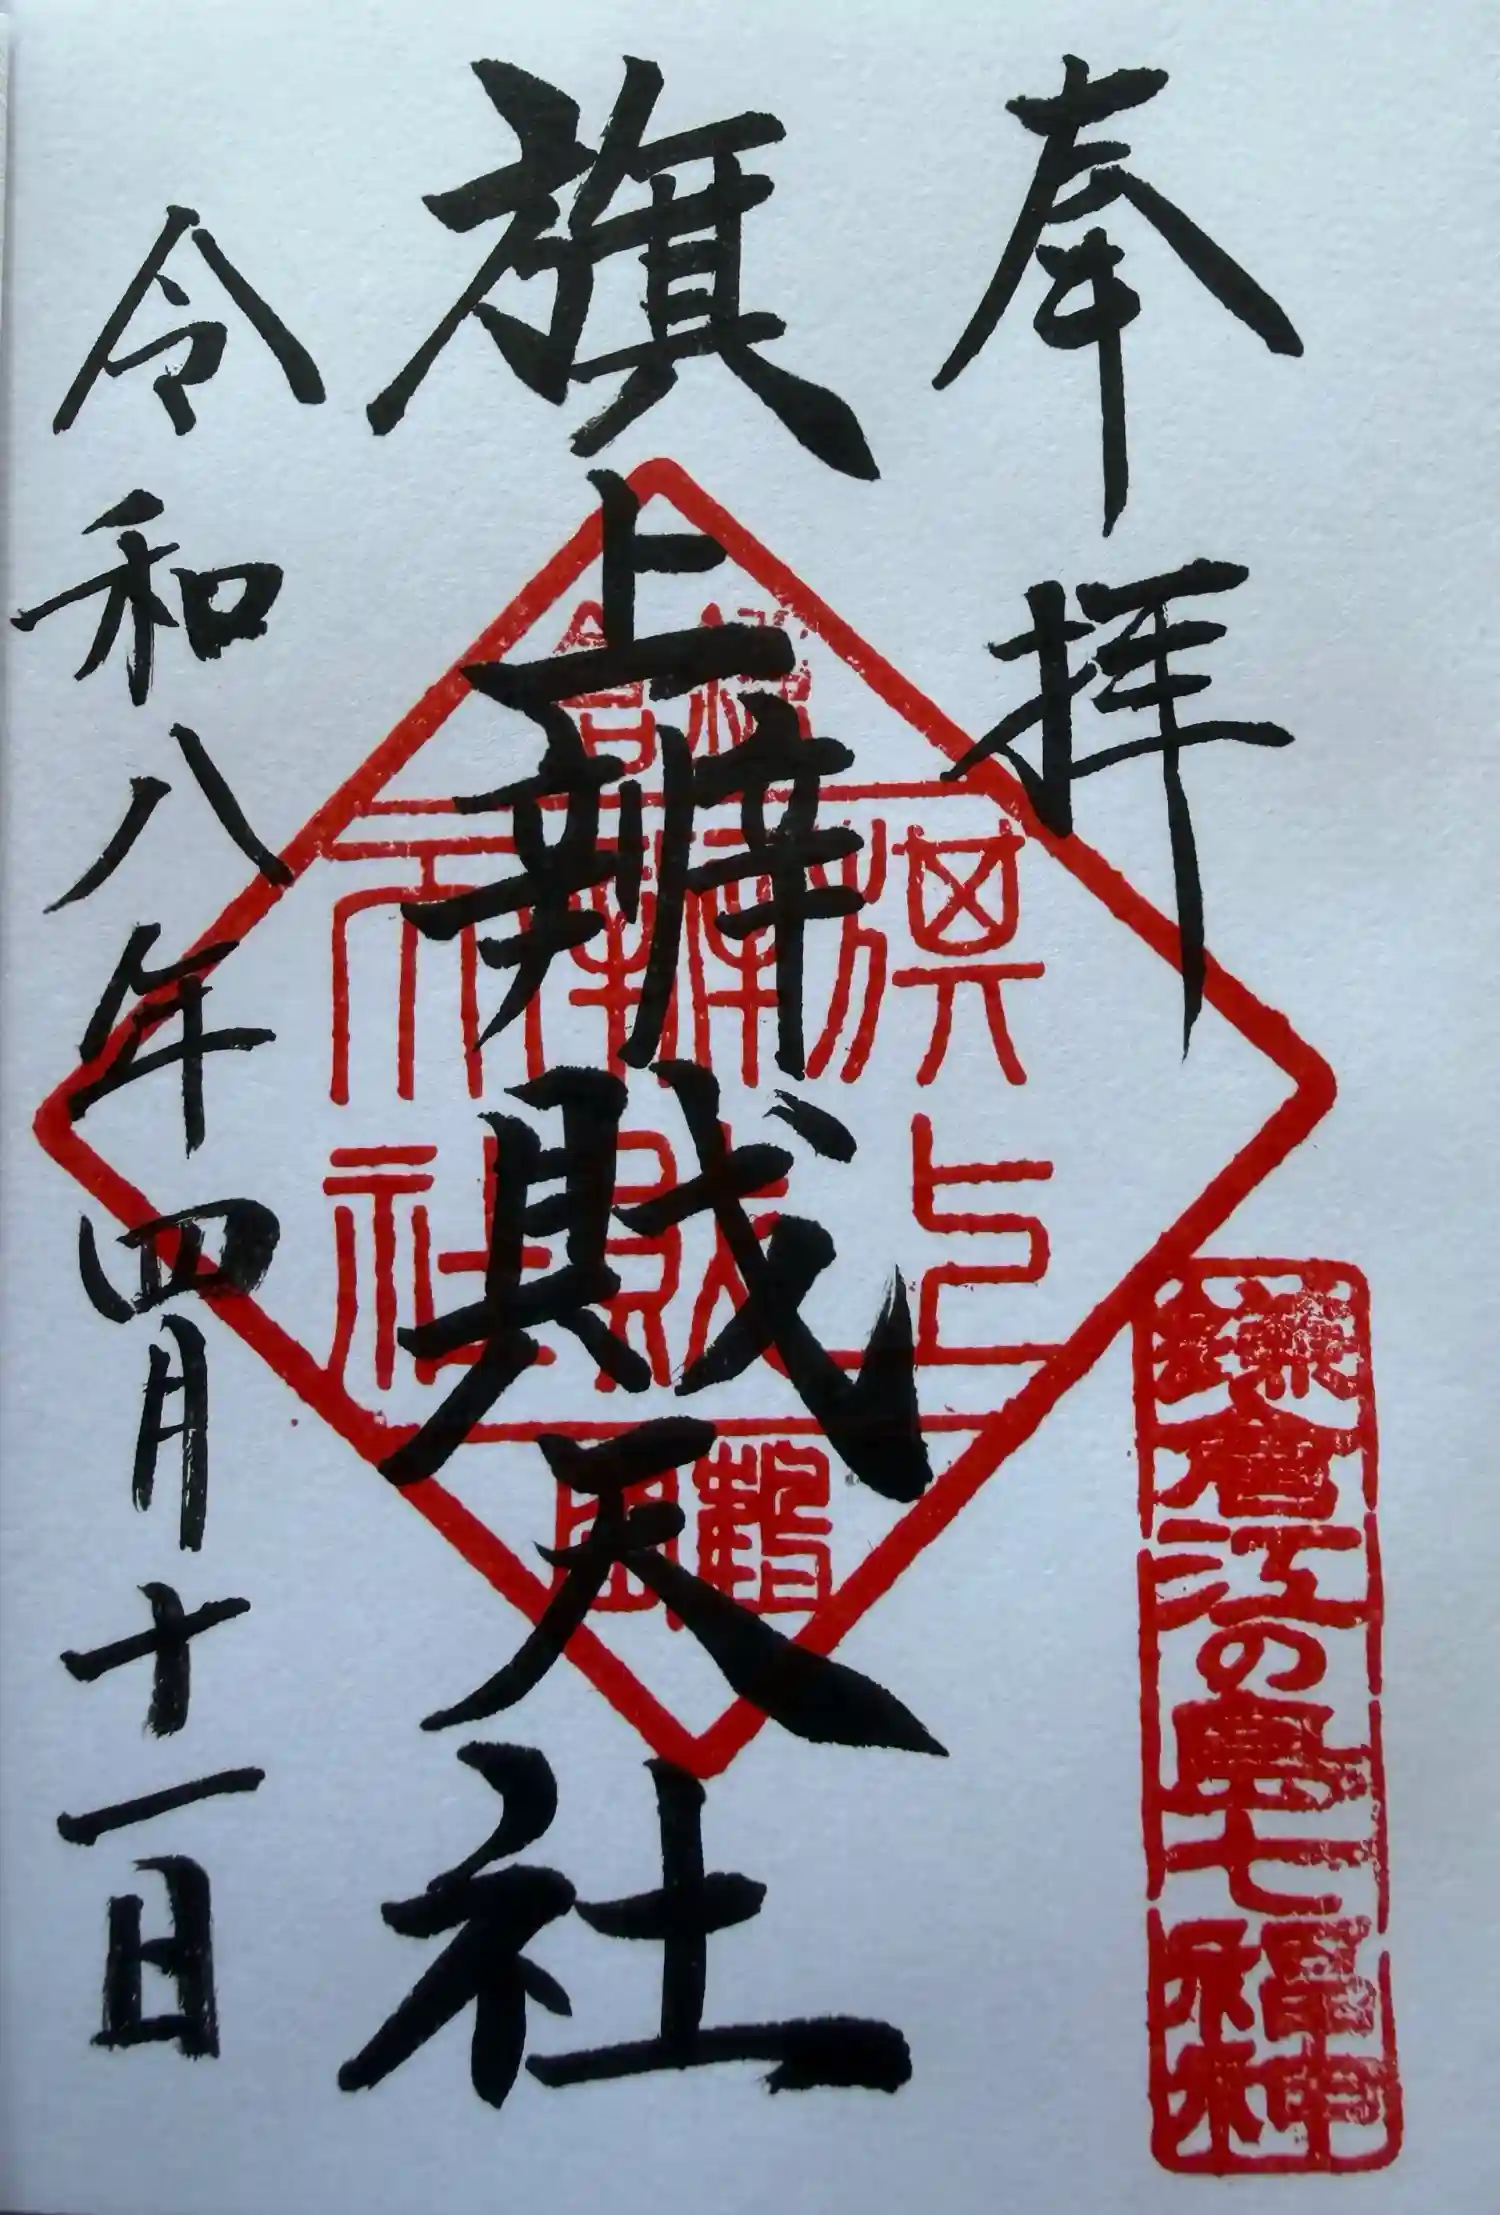 奉拝
鎌倉江の島七福神
旗上辨財天社
旗上
辨財
天社
令和八年四月十一日